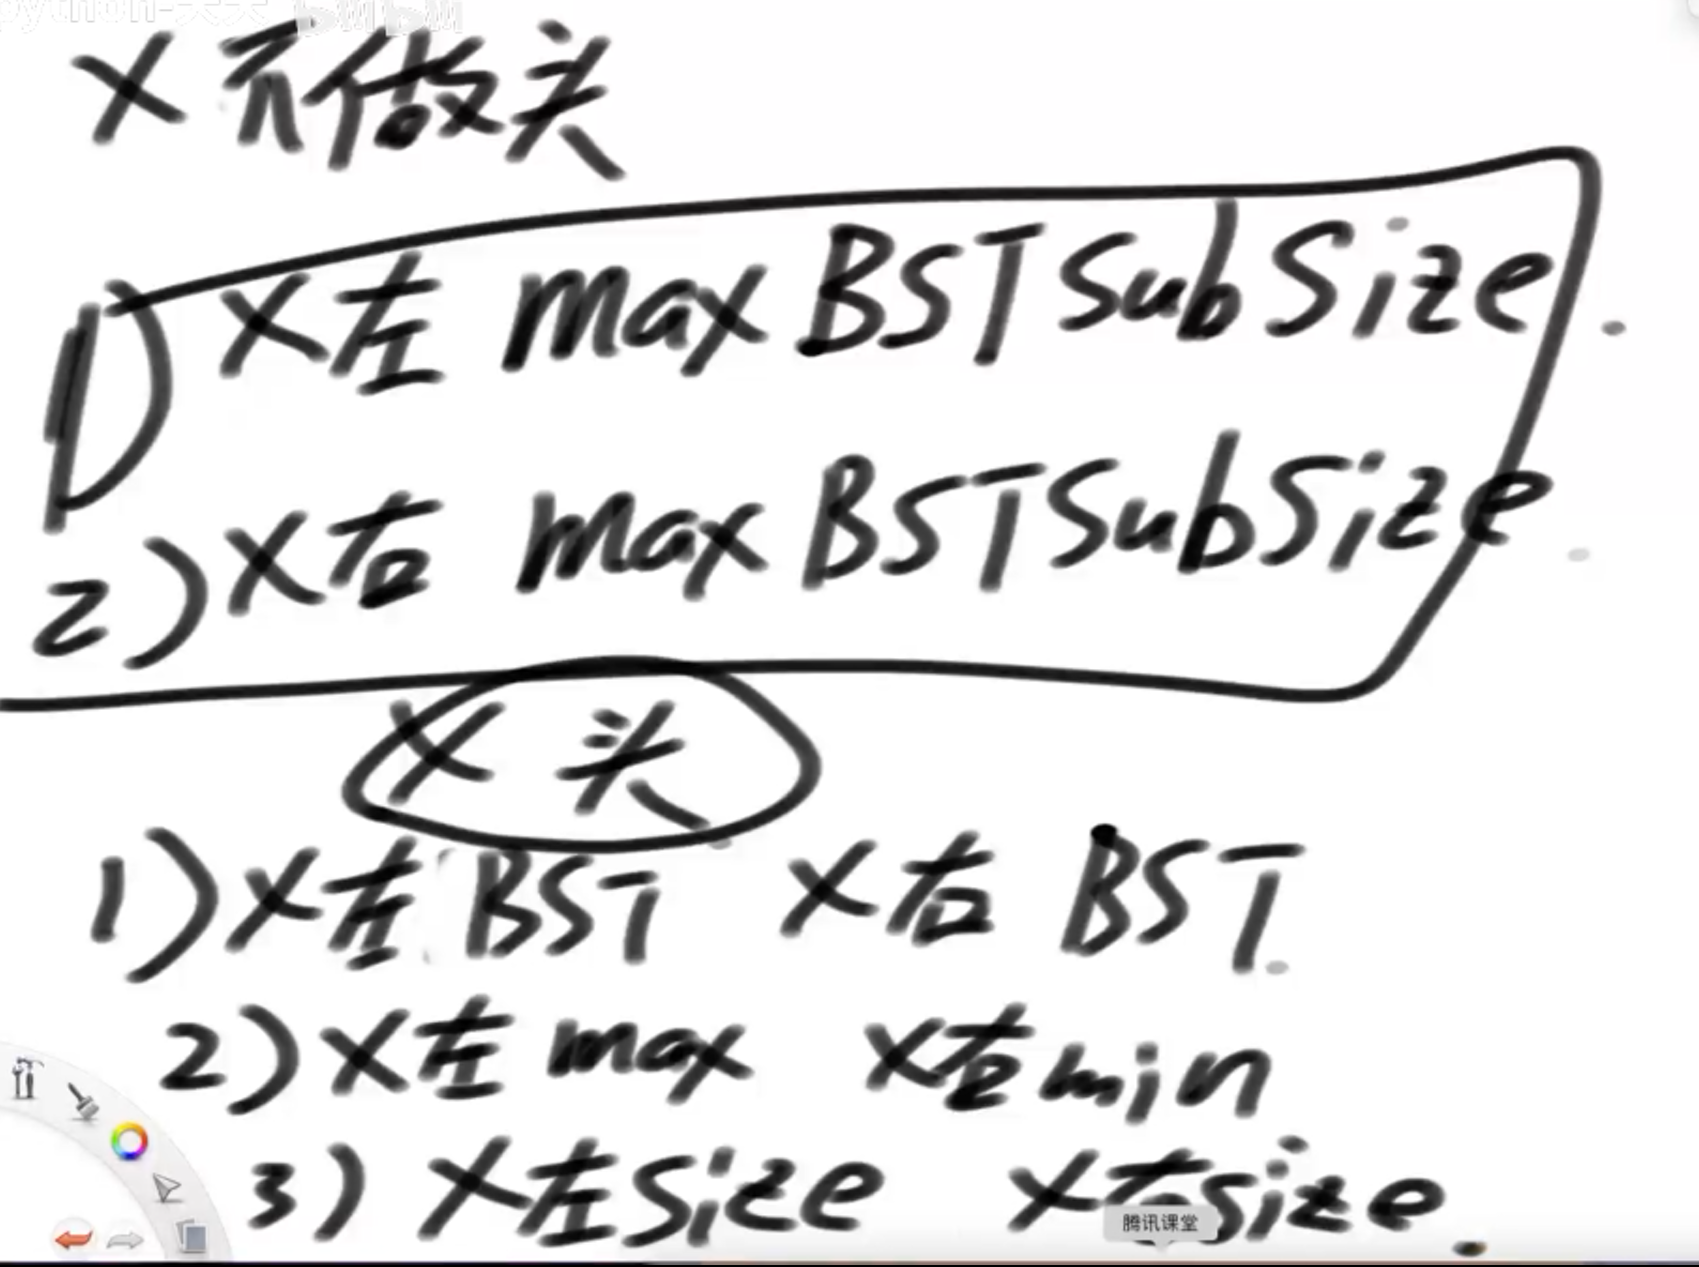 X不做头
1) X左 maxBSTSubSize.
2) X右 maxBSTSubSize.
X 头
1) X左 BST X右 BST.
2) X左 max X右 min
3) X左 size X右 size.
腾讯课堂